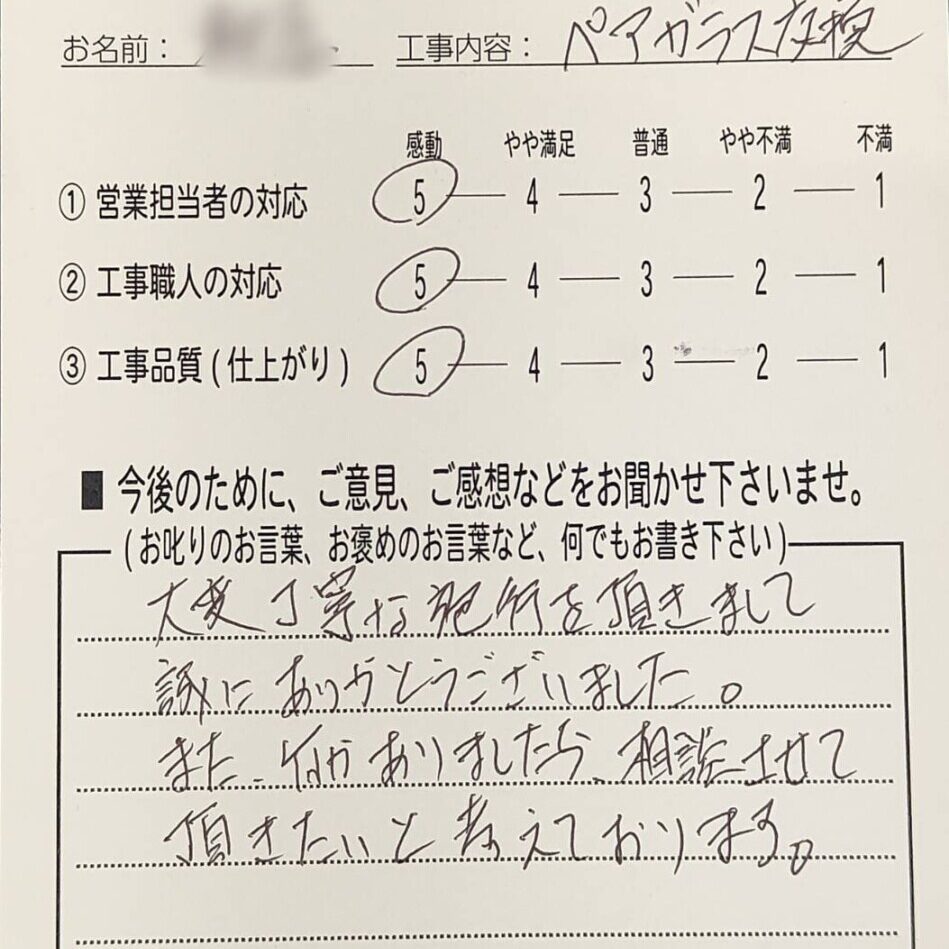 お名前： 工事内容：ペアガラス交換
感動 やや満足 普通 やや不満 不満
① 営業担当者の対応 5 — 4 — 3 — 2 — 1
② 工事職人の対応 5 — 4 — 3 — 2 — 1
③ 工事品質 ( 仕上がり ) 5 — 4 — 3 — 2 — 1
■ 今後のために、ご意見、ご感想などをお聞かせ下さいませ。
( お叱りのお言葉、お褒めのお言葉など、何でもお書き下さい )
大変丁寧な施行を頂きまして
誠にありがとうございました。
また、何かありましたら、相談させて
頂きたいと考えております。